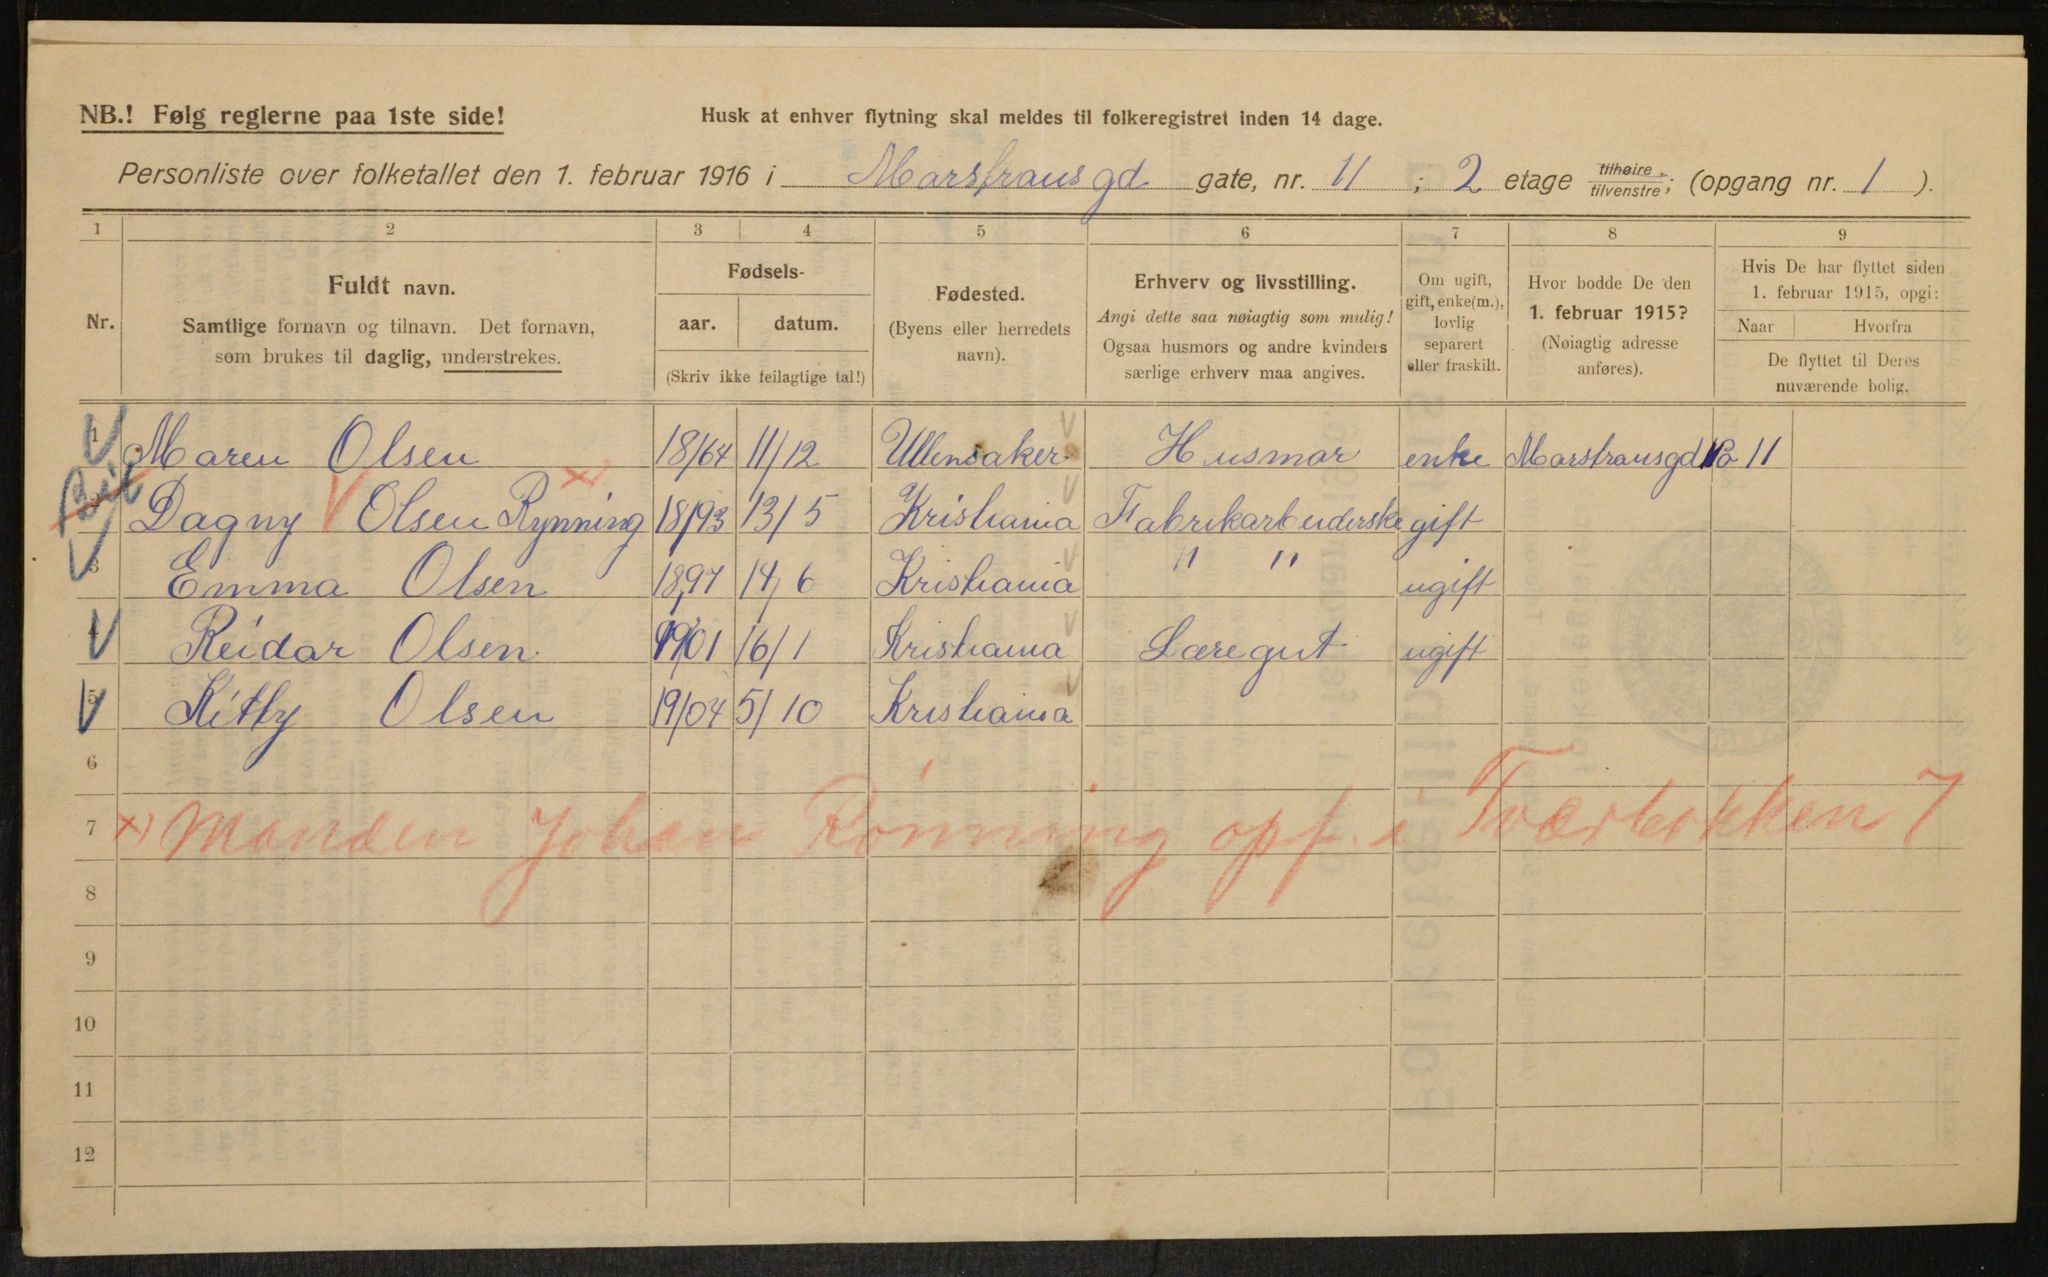 NB.! Følg reglerne paa 1ste side!
Husk at enhver flytning skal meldes til folkeregistret inden 14 dage.
Personliste over folketallet den 1. februar 1916 i Marstransgd. gate, nr. 11 ; 2 etage tilhøire / tilvenstre; (opgang nr. 1 ).
1 2 3 4 5 6 7 8 9
Nr.
Fuldt navn.
Samtlige fornavn og tilnavn. Det fornavn,
som brukes til daglig, understrekes.
Fødsels-
aar. datum.
(Skriv ikke feilagtige tal!)
Fødested.
(Byens eller herredets
navn).
Erhverv og livsstilling.
Angi dette saa nøiagtig som mulig!
Ogsaa husmors og andre kvinders
særlige erhverv maa angives.
Om ugift,
gift, enke(m.),
lovlig
separert
eller fraskilt.
Hvor bodde De den
1. februar 1915?
(Nøiagtig adresse
anføres).
Hvis De har flyttet siden
1. februar 1915, opgi:
Naar Hvorfra
De flyttet til Deres
nuværende bolig.
1 Maren Olsen 18/64 11/12 Ullensaker Husmor enke Marstransgd No 11
2 Dagny Olsen Rynning x) 18/93 13/5 Kristiania Fabrikarbeiderske gift
3 Emma Olsen 18,97 14,6 Kristiania " " ugift
4 Reidar Olsen 19/01 16/1 Kristiania Læregut ugift
5 Kitty Olsen 19/04 5/10 Kristiania
6
7 x) Manden Johan Rönning opf. i Tværbakken 7
8
9
10
11
12